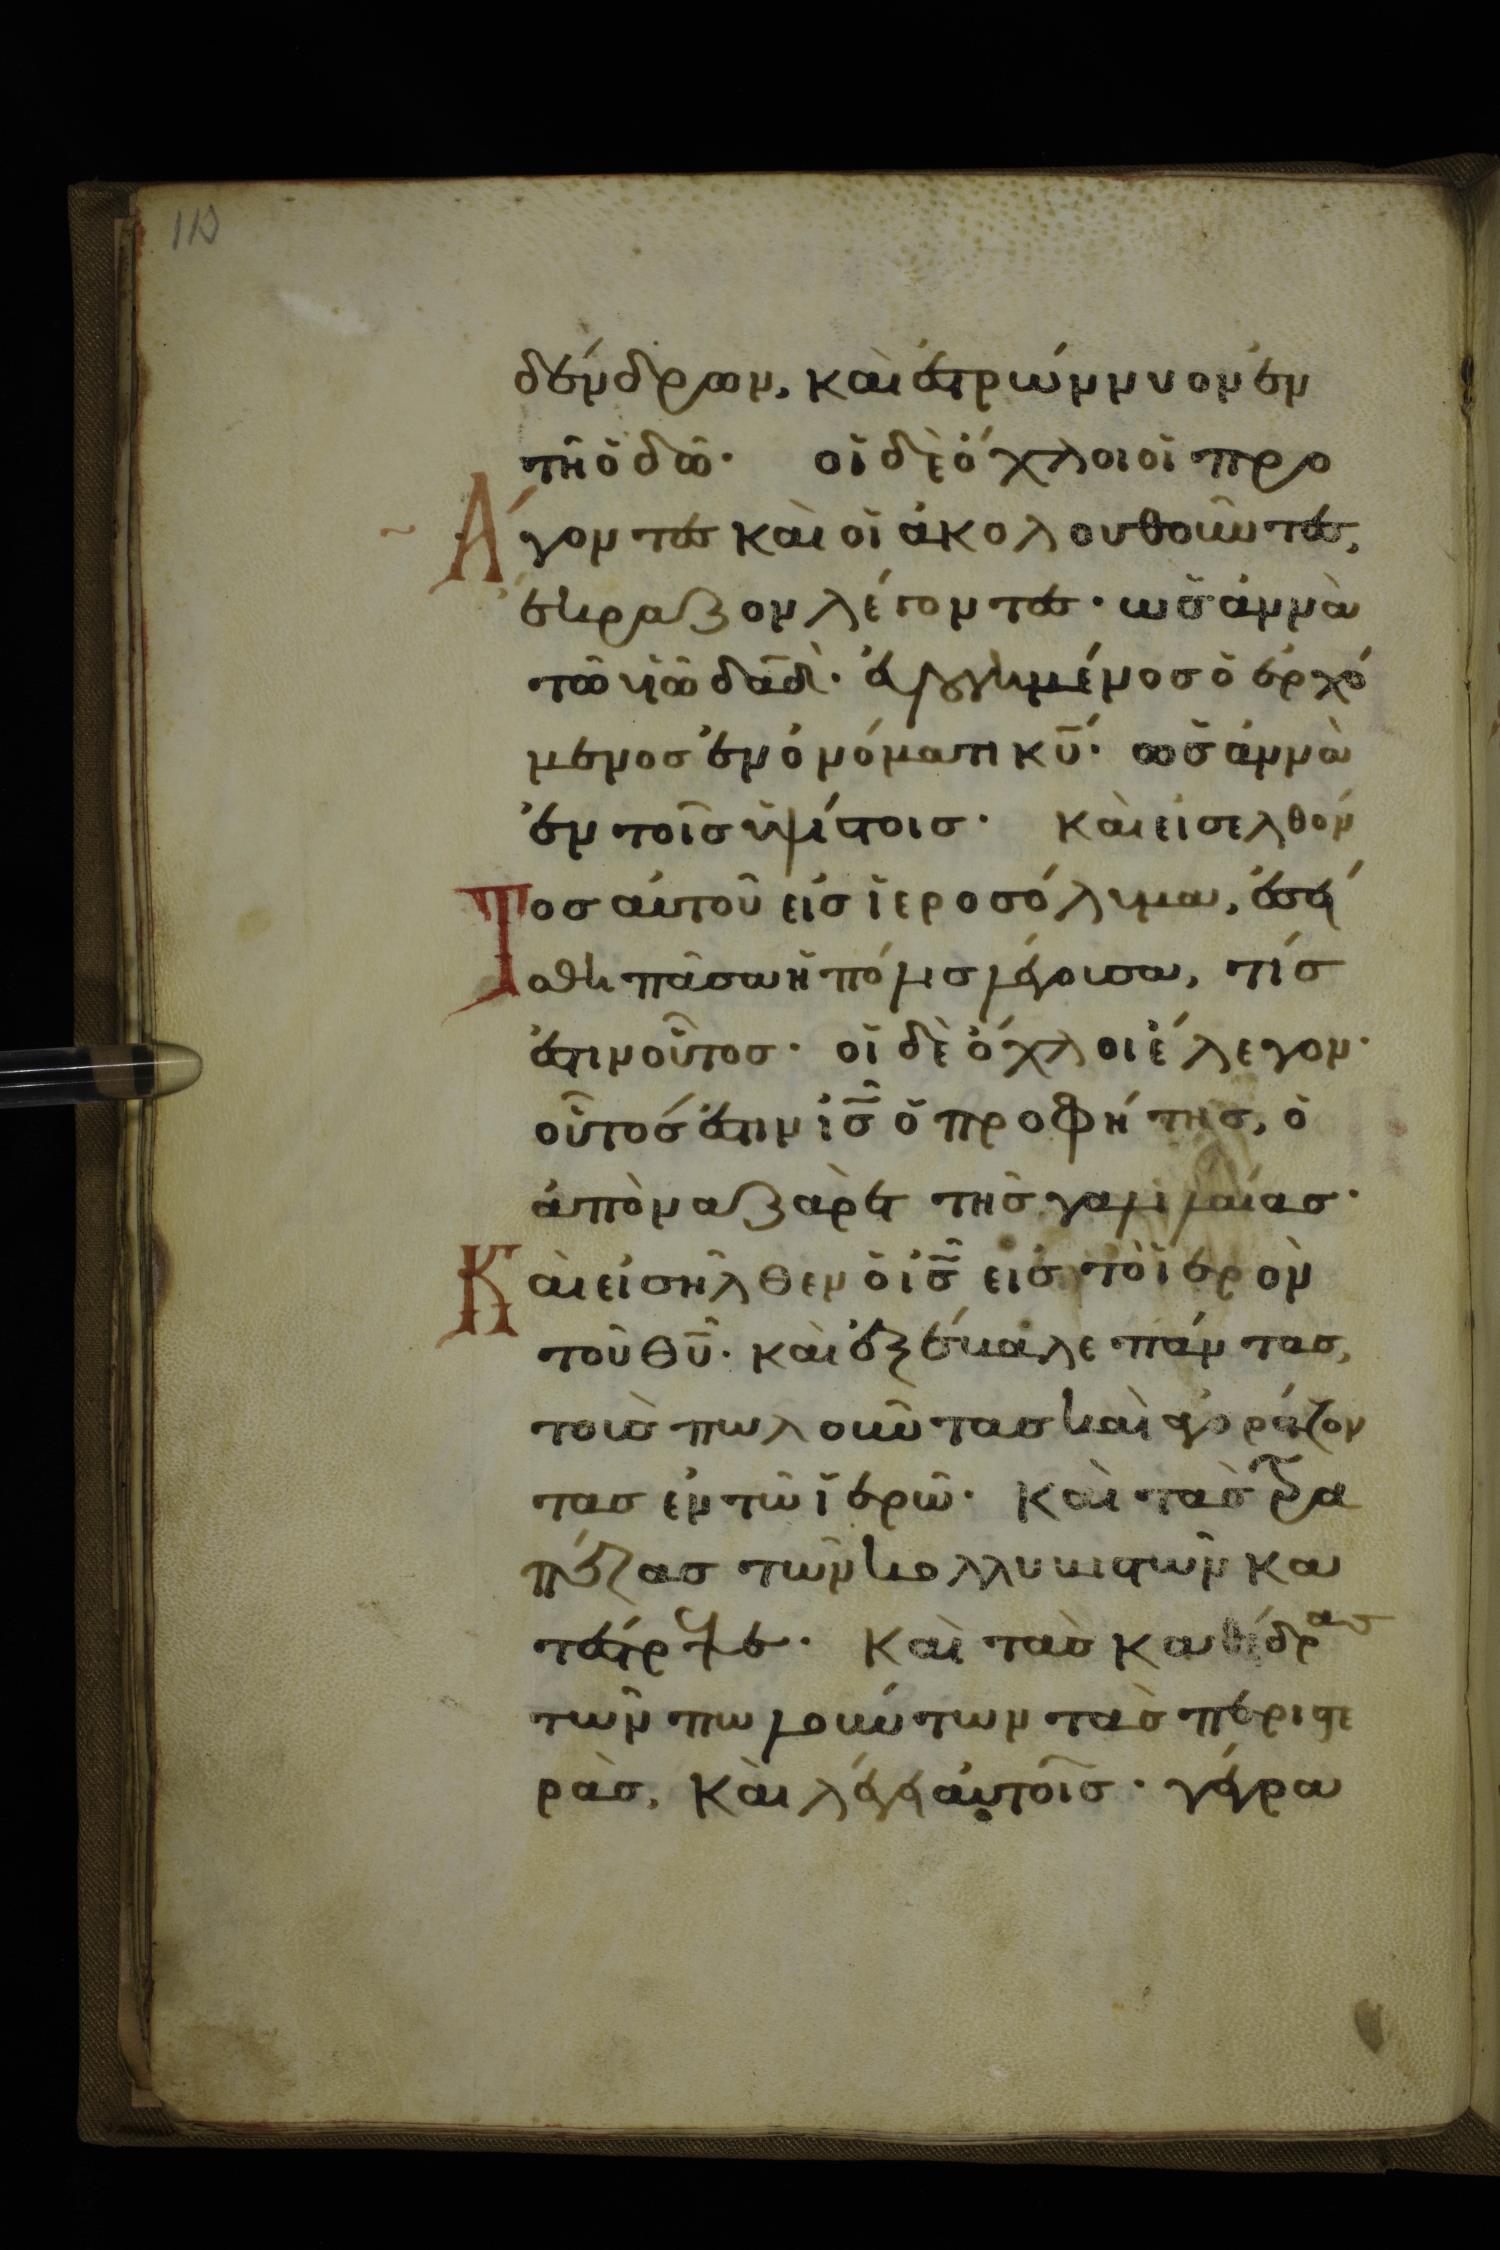 110
δένδρων, καὶ ἐστρώννυον ἐν
τῆ ὁδῶ· οἱ δὲ ὄχλοι οἱ προ
Ἄγοντες καὶ οἱ ἀκολουθοῦντες,
ἔκραζον λέγοντες· ὡσἀννὰ
τῶ υἱῶ δαδ̅· εὐλογημένος ὁ ἐρχό
μενος ἐν ὀνόματι κυ̅· ὡσἀννὰ
ἐν τοῖς ὑψίστοις· Καὶ εἰσελθόν
Τος αὐτοῦ εἰς ἱεροσόλυμα, ἐσεί
σθη πᾶσα ἡ πόλις λέγουσα, τίς
ἐστιν οὗτος· οἱ δὲ ὄχλοι ἔλεγον·
οὗτός ἐστιν ἰς̅ ὁ προφήτης, ὁ
ἀπὸ ναζαρὲτ τῆς γαλιλαίας·
Καὶ εἰσῆλθεν ὁ ἰς̅ εἰς τὸ ἱερὸν
τοῦ θυ̅· καὶ ἐξέβαλε πάντας,
τοὺς πωλοῦντας καὶ ἀγοράζον
τας ἐν τῶ ἱερῶ· Καὶ τὰς τρα
πέζας τῶν κολλυβιστῶν κα
τέστρεψε· Καὶ τὰς καθέδρας
τῶν πωλούντων τὰς περιστε
ρὰς, Καὶ λέγει αὐτοῖς· γέγρα